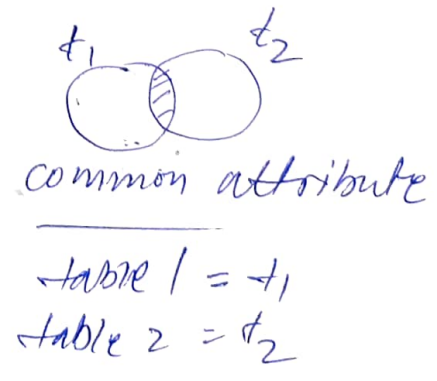 t₁ t₂
common attribute
table 1 = t₁
table 2 = t₂